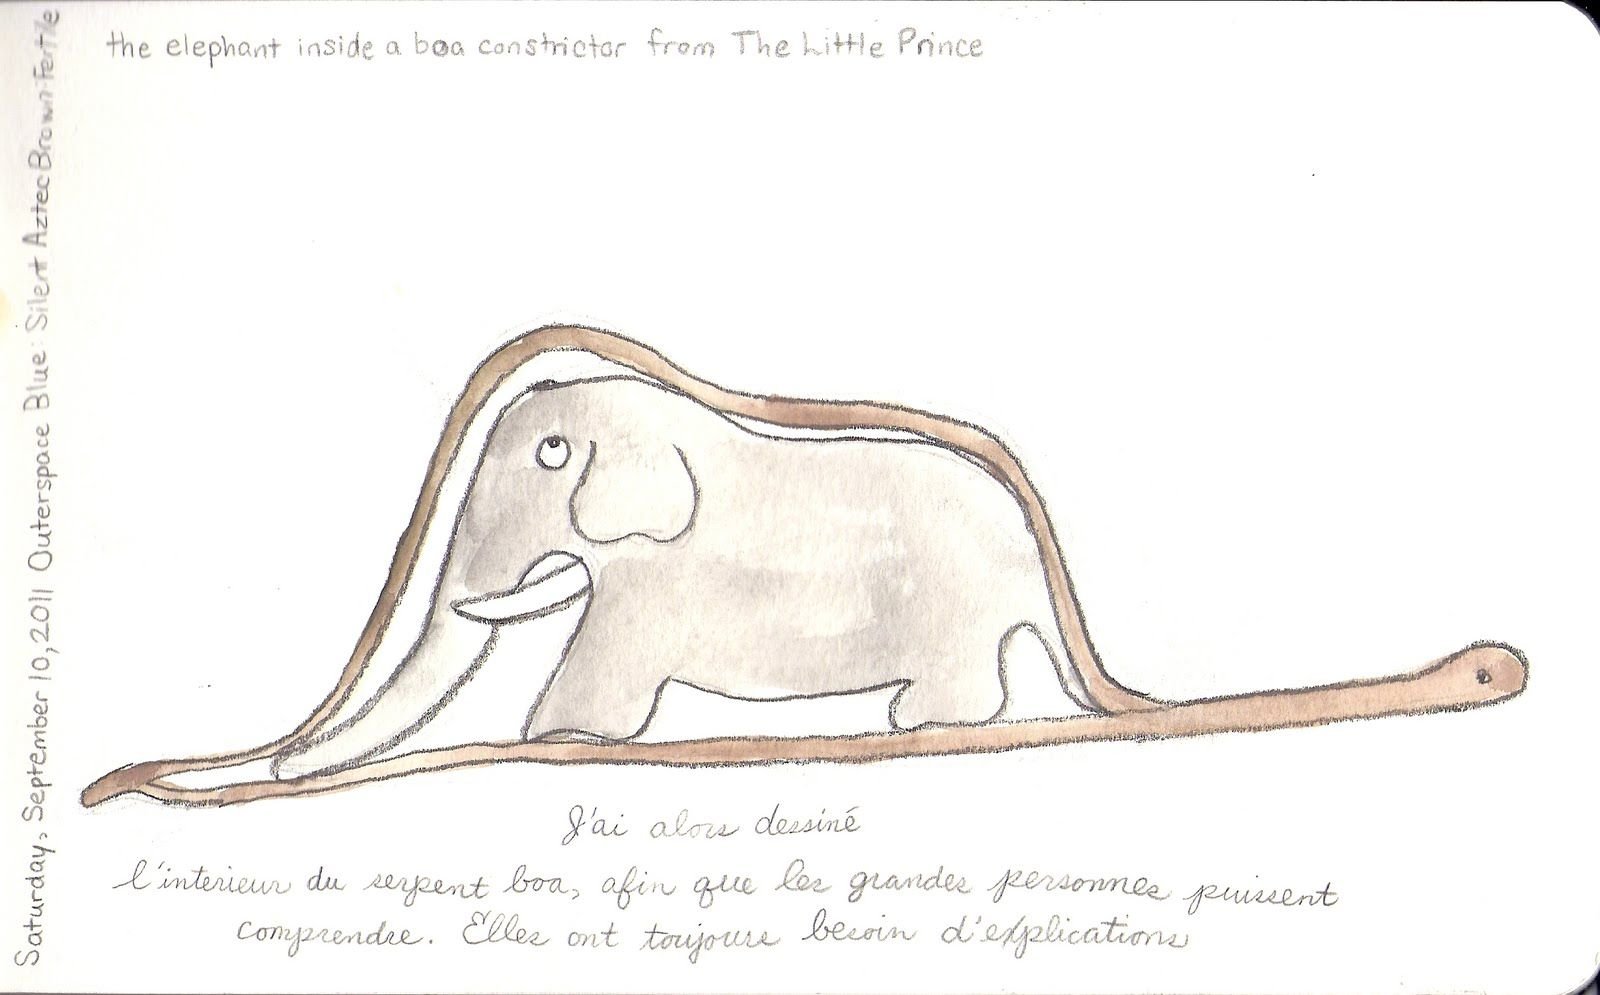 the elephant inside a boa constrictor from The Little Prince
Saturday, September 10, 2011 Outerspace Blue: Silent Aztec Brown: Fertile
J'ai alors dessiné
l'intérieur du serpent boa, afin que les grandes personnes puissent
comprendre. Elles ont toujours besoin d'explications